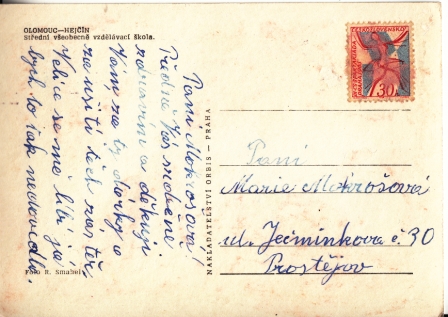 OLOMOUC—HEJČÍN
Střední všeobecně vzdělávací škola.
Paní Mokrošová!
Předně Vás srdečně
zdravím a děkuji
Vám za ty dárky a
za ušití těch zástěr.
Velice se mě líbí já
bych to tak neudělala.
Foto R. Smahel
NAKLADATELSTVÍ ORBIS — PRAHA
ČESKOSLOVENSKO
30
Paní
Marie Mokrošová
ul. Ječmínkova č. 30
Prostějov